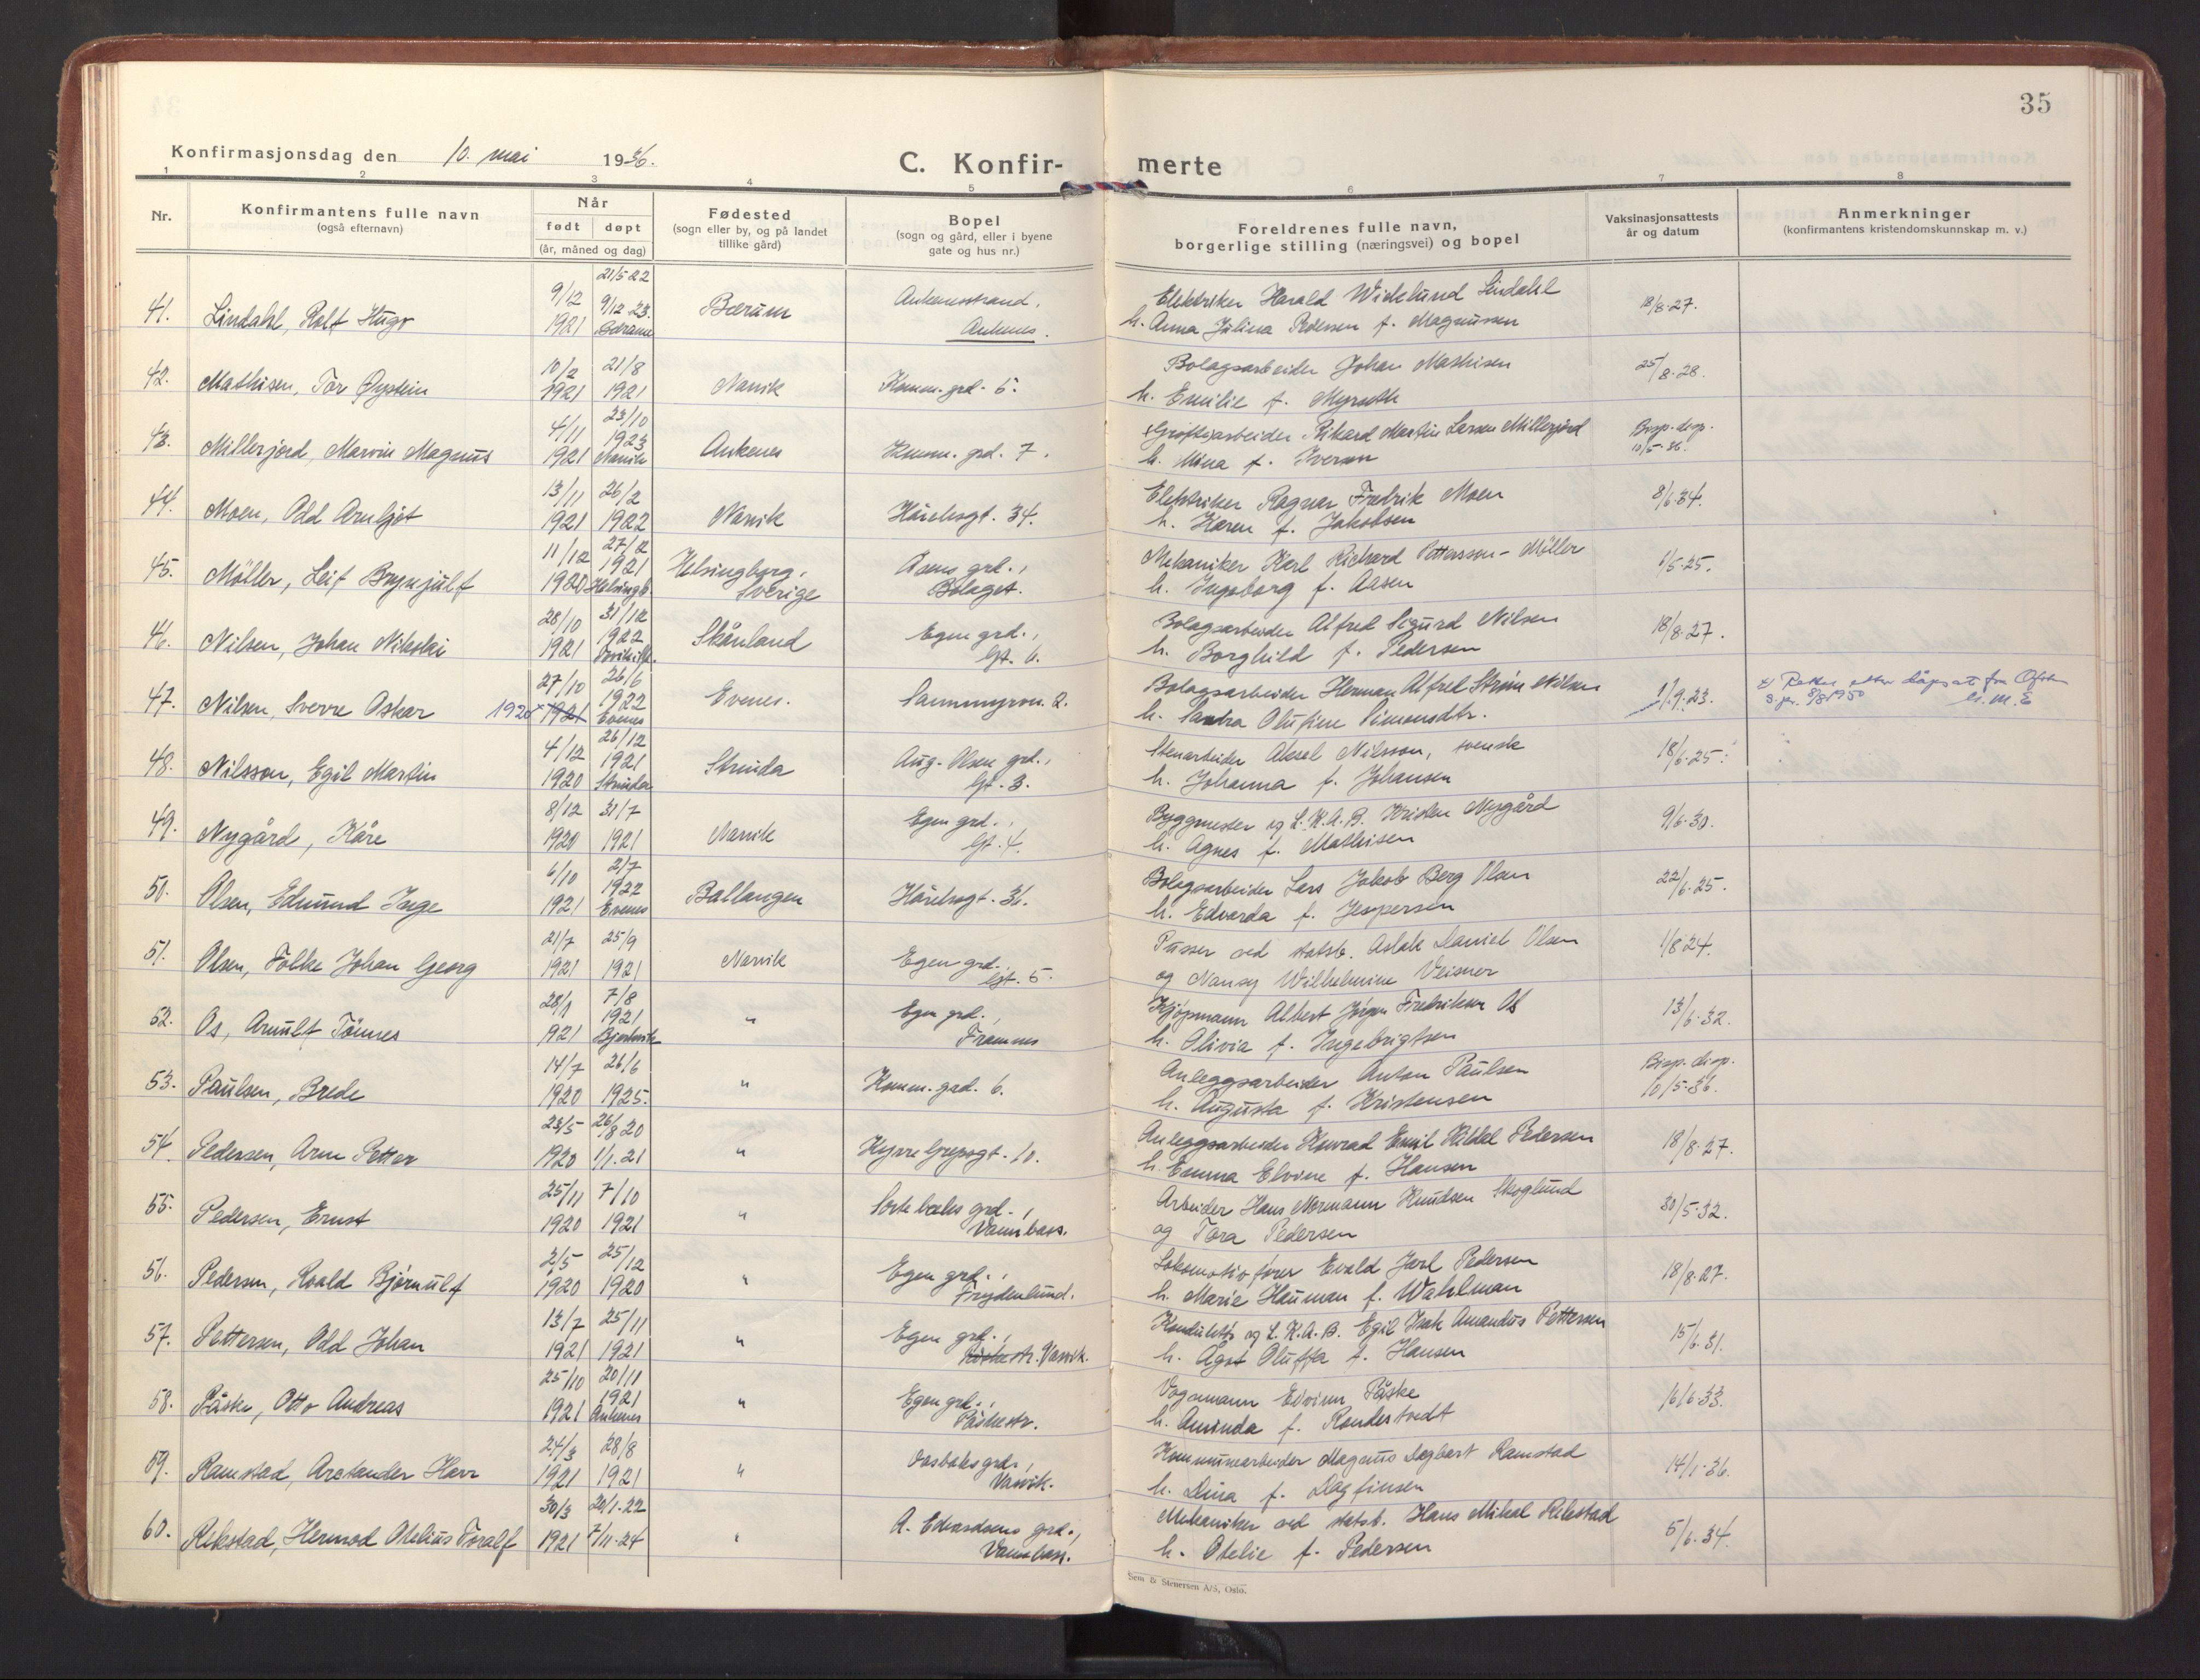 35
Konfirmasjonsdag den 10. mai 1936.
C. Konfir- merte
1 2 3 4 5 6 7 8
Nr.
Konfirmantens fulle navn
(også efternavn)
Når
født døpt
(år, måned og dag)
Fødested
(sogn eller by, og på landet
tillike gård)
Bopel
(sogn og gård, eller i byene
gate og hus nr.)
Foreldrenes fulle navn,
borgerlige stilling (næringsvei) og bopel
Vaksinasjonsattests
år og datum
Anmerkninger
(konfirmantens kristendomskunnskap m. v.)
21/5 22
9/12 9/12 23. Bærum Ankenesstrand, Elektriker Harald Lindahl 18/8-27.
41. Lindahl, Rolf Hugo 1921 Ankenes. h. Anna Julina Pedersen f. Magnussen
10/2 21/8 Bolagsarbeider Johan Mathisen 25/8-28.
42. Mathisen, Tor Øystein 1921 1921 Narvik Komm. grd. 5. h. Emilie f. Myrseth
4/11 23/10 1923 Grøftearbeider Rikard Martin Larsen Millerjord Bisp. disp.
43. Millerjord, Marvin Magnus 1921 Narvik Ankenes Komm. grd. 7. h. Mina f. Iversen 10/5-36.
13/11 26/2 Elektriker Ragnar Fredrik Moen 8/6-34.
44. Moen, Odd Arnljot 1921 1922 Narvik Håreksgt. 34. h. Karen f. Jakobsen
11/12 27/12 1921 Helsingborg, Aasens grd., Mekaniker Karl Richard Pettersson-Möller 1/5-25.
45. Möller, Leif Brynjulf 1920 Helsingb. Sverige Bolaget. h. Ingeborg f. Aasen
28/10 31/12 1922 Skånland Egen grd., Bolagsarbeider Alfred Sigurd Nilsen 18/8-27.
46. Nilsen, Johan Nikolai 1921 Gt. 6. h. Borghild f. Pedersen
27/10 26/6 1922 Evenes. Bolagsarbeider Herman Alfred Strøm Nilsen 1/9-23.
47. Nilsen, Sverre Oskar 1920 x 1921 Evenes h. Sandra Olufine Simonsdtr.
4/12 26/12 1921 Strinda Aug. Olsens grd., Stenarbeider Aksel Nilsson, svensk 18/6-25.
48. Nilsson, Egil Martin 1920 Strinda Gt. 3. h. Johanna f. Johansen
8/12 31/7 Narvik Egen grd., Byggmester og L.K.A.B. Kristen Nygård 9/6-30.
49. Nygård, Kåre 1920 1921 Gt. 4. h. Agnes f. Mathisen
6/10 2/7 1922 Ballangen Håreksgt. 31. Bolagsarbeider Lars Jakob Berg Olsen 22/6-25.
50. Olsen, Edmund Inge 1921 Evenes h. Edvarda f. Jespersen
21/7 25/9 Narvik Egen grd., Pusser ved statsb. Aslak Daniel Olsen 1/8 24.
51. Olsen, Folke Johan Georg 1921 1921 Gt. 5 og Nansy Wilhelmine Veisner
28/1 7/8 1921 " Egen grd., Kjøpmann Albert Jørgen Fredriksen Os 13/6-32.
52. Os, Arnulf Tönnes 1921 Bjerkvik Framnes h. Olivia f. Ingebrigtsen
14/7 26/6 " Komm. grd. 6. Anleggsarbeider Anton Paulsen Bisp. disp.
53. Paulsen, Brede 1920 1925. h. Augusta f. Kristensen 10/5-36.
23/5 26/8 20 Anleggsarbeider Konrad Emil Hildal Pedersen 18/8-27.
54. Pedersen, Arne Petter 1920 1/1.21 " Kjørre Grepsgt. 10. h. Emma Elvine f. Hansen
25/11 7/10 " Arbeider Hans Normann Knudsen Skoglund 30/5-32.
55. Pedersen, Ernst 1920 1921 Vannbass. og Tora Pedersen
2/5 25/12 " Egen grd., Lokomotivfører Evald Jarl Pedersen 18/8-27.
56. Pedersen, Roald Bjørnulf 1920 1920 Frydenlund. h. Marie Hauman f. Wahlman
13/7 25/11 " Egen grd., Konduktør og L.K.A.B. Egil Isak Amandus Pettersen 15/6-31.
57. Pettersen, Odd Johan 1921 1921 Vassvik. h. Agot Oluffa f. Hansen
25/10 20/11 1921 " Egen grd., Vognmann Edvinn Påske 16/6-33.
58. Påske, Otto Andreas 1921 Ankenes Påskestr. h. Aminda f. Rondestvedt
24/3 28/8 " Vassvik. Kommunearbeider Magnus Dagbart Ramstad 14/1-36.
59. Ramstad, Arctander Harr 1921 1921 h. Dina f. Dagfinsen
30/3 20/1-22 " A. Edvardsens grd., Mekaniker ved statsb. Hans Mikal Rekstad 5/6-34.
60. Rekstad, Hermod Otelius Toralf 1921 7/11-24 Vannbass. h. Otelie f. Pedersen
Sem & Stenersen A/S, Oslo.